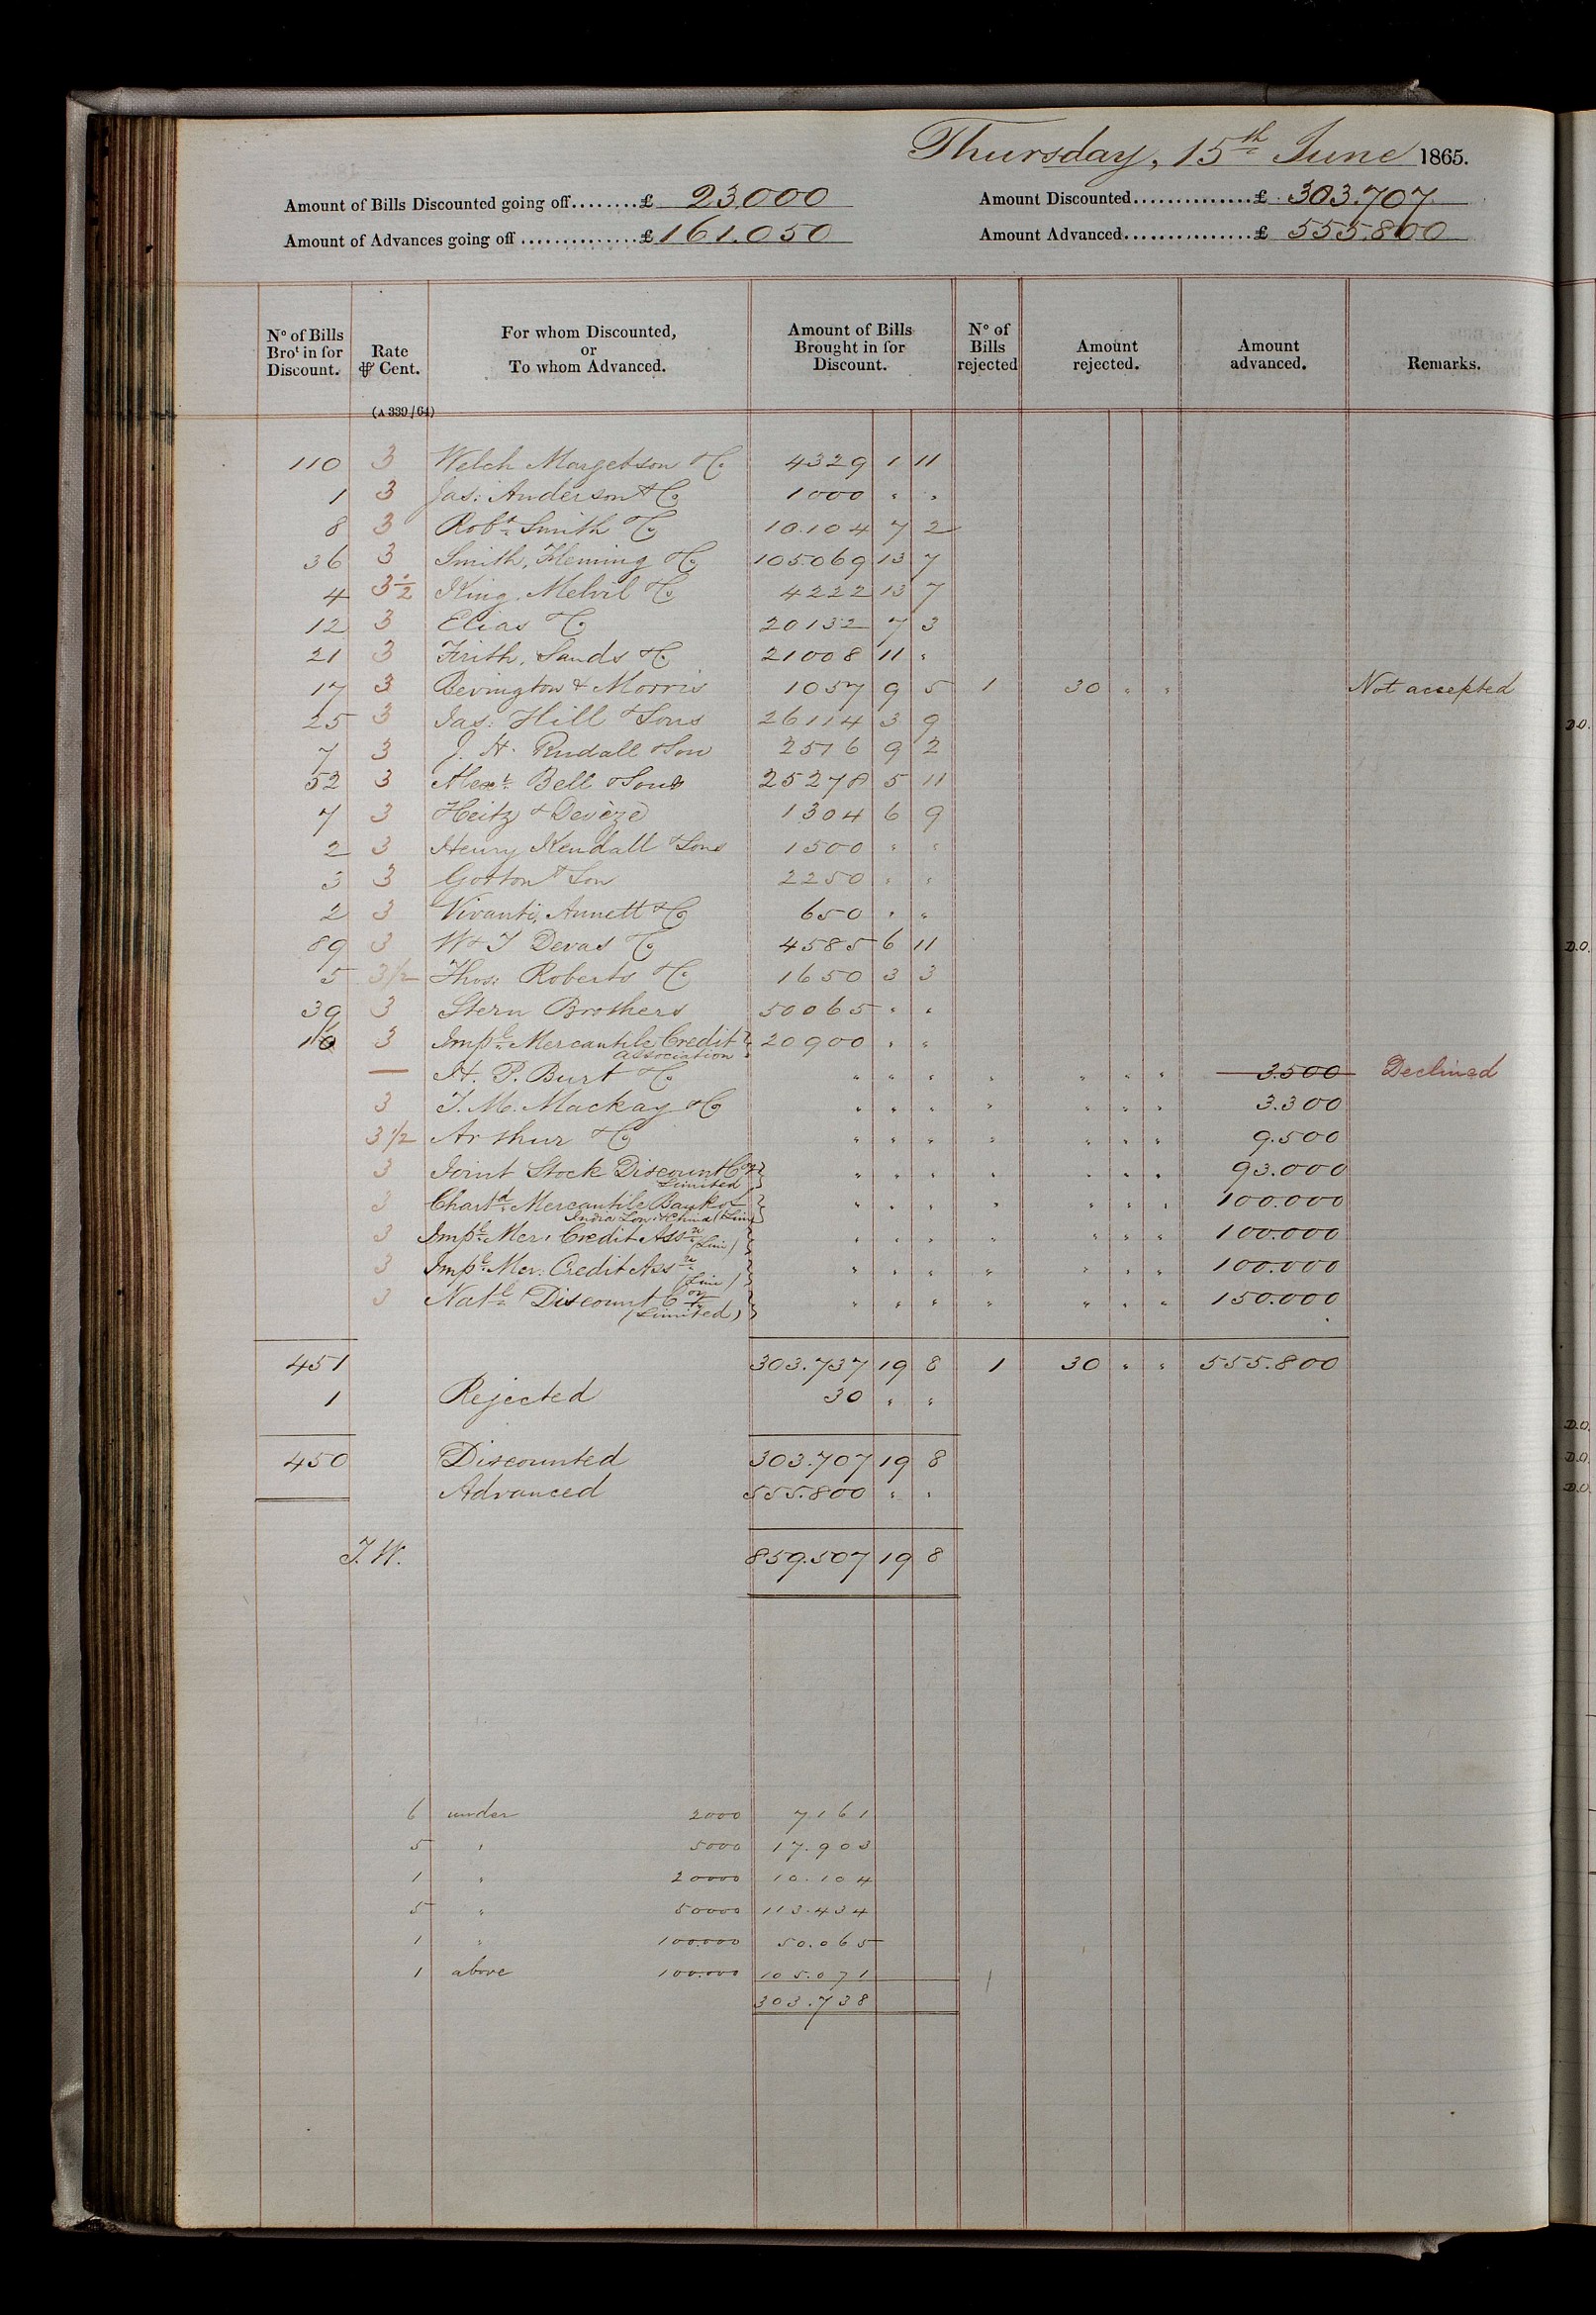 Thursday, 15th June 1865.
Amount of Bills Discounted going off........£ 23.000 Amount Discounted...............£ 303.707
Amount of Advances going off...............£ 161.050 Amount Advanced.................£ 555.800
No of Bills Brot in for Discount. Rate ⅌ Cent. For whom Discounted, or To whom Advanced. Amount of Bills Brought in for Discount. No of Bills rejected Amount rejected. Amount advanced. Remarks.
(A 339/64)
110 3 Welch Margetson & Co 4329 1 11
1 3 Jas: Anderson & Co 1000 " "
8 3 Robt Smith & Co 10.104 7 2
36 3 Smith, Fleming & Co 105.069 13 7
4 3½ King, Melvil & Co 4222 13 7
12 3 Elias & Co 20132 7 3
21 3 Frith, Sands & Co 21008 11 "
17 3 Bevington & Morris 1057 9 5 1 30 " " Not accepted
25 3 Jas: Hill & Sons 26114 3 9
7 3 J. H. Rudall & Son 2516 9 2
52 3 Alexr Bell & Sons 25278 5 11
7 3 Heitz & Devèze 1304 6 9
2 3 Henry Kendall & Sons 1500 " "
3 3 Gotton & Son 2250 " "
2 3 Vivanti, Annett & Co 650 " "
89 3 W & T Devas & Co 4585 6 11
5 3½ Thos: Roberts & Co 1650 3 3
39 3 Stern Brothers 50065 " "
3 Impl Mercantile Credit 20900 " "
association
— H. P. Burt & Co " " " " " " " 3.500 Declined
3 T. M. Mackay & Co " " " " " " " 3.300
3½ Arthur & Co " " " " " " " 9.500
3 Joint Stock Discount Coy " " " " " " " 93.000
Limited
3 Chartd Mercantile Bank of " " " " " " " 100.000
India Lon: & China (Lim
3 Impl Mer: Credit Assn " " " " " " " 100.000
(Lim)
3 Impl Mer: Credit Assn " " " " " " " 100.000
(Lim)
3 Natl Discount Coy " " " " " " " 150.000
(Limited)
451 303.737 19 8 1 30 " " 555.800
1 Rejected 30 " "
450 Discounted 303.707 19 8
Advanced 555.800 " "
J. W. 859.507 19 8
6 under 2000 7.161
5 " 5000 17.903
1 " 20000 10.104
5 " 50000 113.434
1 " 100.000 50.065
1 above 100.000 105.071
303.738
D.O.
D.O.
D.O.
D.O.
D.O.